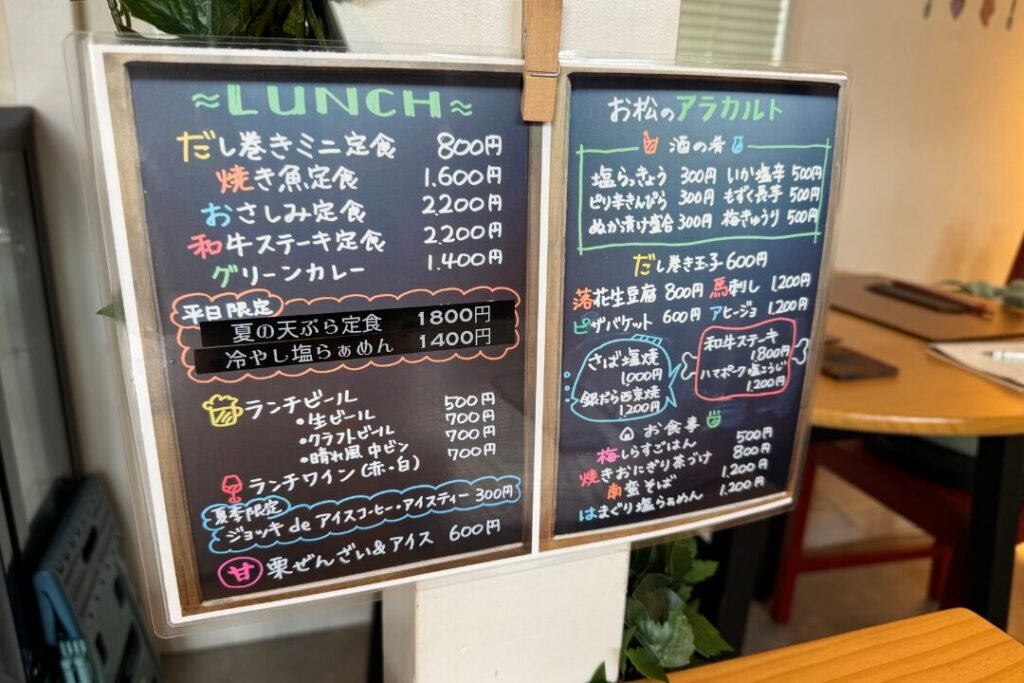 ≈LUNCH≈
だし巻きミニ定食 800円
焼き魚定食 1.600円
おさしみ定食 2.200円
和牛ステーキ定食 2.200円
グリーンカレー 1.400円
平日限定
夏の天ぷら定食 1800円
冷やし塩らぁめん 1400円
ランチビール 500円
・生ビール 700円
・クラフトビール 700円
・晴れ風 中ビン 700円
ランチワイン(赤・白)
夏季限定
ジョッキ de アイスコーヒー・アイスティー 300円
甘 栗ぜんざい&アイス 600円
お松のアラカルト
酒の肴
塩らっきょう 300円 いか塩辛 500円
ピリ辛きんぴら 300円 もずく長芋 500円
ぬか漬け盛合 300円 梅きゅうり 500円
だし巻き玉子 600円
落花生豆腐 800円 馬刺し 1,200円
ピザバケット 600円 アヒージョ 1,200円
さば塩焼
1,000円
銀だら西京焼
1,200円
和牛ステーキ
1800円
ハマポーク塩こうじ
1,200円
お食事
梅しらすごはん 500円
焼きおにぎり茶づけ 800円
南蛮そば 1,200円
はまぐり塩らぁめん 1,200円